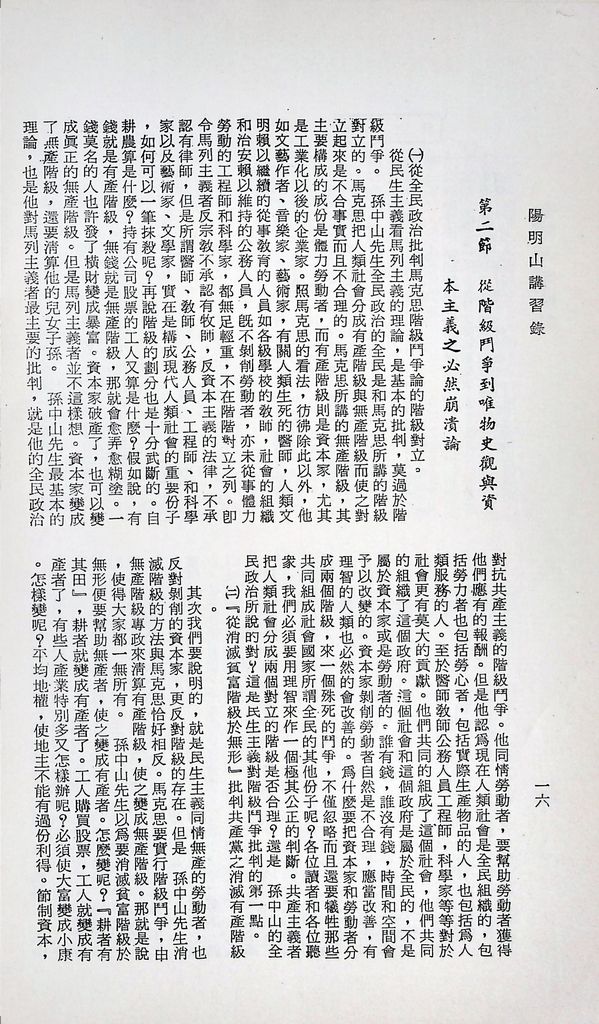 陽明山講習錄
一六
第二節　從階級鬥爭到唯物史觀與資
本主義之必然崩潰論
㈠從全民政治批判馬克思階級鬥爭論的階級對立。
從民生主義看馬列主義的理論，是基本的批判，莫過於階
級鬥爭。　孫中山先生全民政治的全民是和馬克思所講的階級
對立的。馬克思把人類社會分成有產階級與無產階級而使之對
立起來是不合事實而且不合理的。馬克思所講的無產階級，其
主要構成的成份是體力勞動者，而有產階級則是資本家，尤其
是工業化以後的企業家。照馬克思的看法，彷彿除此以外，他
如文藝作者、音樂家、藝術家，有關人類生死的醫師，人類文
明賴以繼續的從事教育的人員如各級學校的教師，社會的組織
和治安賴以維持的公務人員，既不剝削勞動者，亦未從事體力
勞動的工程師和科學家，都無足輕重，不在階階對立之列。卽
令馬列主義者反宗教不承認有牧師，反資本主義的法律，不承
認有律師，但是所謂醫師、教師、公務人員、工程師、和科學
家以及藝術家、文學家，實在是構成現代人類社會的重要份子
，如何可以一筆抹殺呢？再說階級的劃分也是十分武斷的。自
耕農算是什麼？持有公司股票的工人又算是什麼？假如說，有
錢就是有產階級，無錢就是無產階級，那就會愈弄愈糊塗。一
錢莫名的人也許發了橫財變成暴富。資本家破產了，也可以變
成眞正的無產階級。但是馬列主義者並不這樣想。資本家變成
了無產階級，還要清算他的兒女子孫。　孫中山先生最基本的
理論，也是他對馬列主義者最主要的批判，就是他的全民政治
對抗共產主義的階級鬥爭。他同情勞動者，要幫助勞動者獲得
他們應有的報酬。但是他認爲現在人類社會是全民組織的，包
括勞力者也包括勞心者，包括實際生產物品的人，也包括爲人
類服務的人。至於醫師教師公務人員工程師，科學家等等對於
社會更有莫大的貢獻。他們共同的組成了這個社會，他們共同
的組織了這個政府。這個社會和這個政府是屬於全民的，不是
屬於資本家或是勞動者的。誰有錢，誰沒有錢，時間和空間會
予以改變的。資本家剝削勞動者自然是不合理，應當改善，有
理智的人類也必然的會改善的。爲什麼要把資本家和勞動者分
成兩個階級，來一個殊死的鬥爭，不僅忽略而且還要犧牲那些
共同組成社會國家所謂全民的其他份子呢？各位讀者和各位聽
衆，我們必須要用理智來作一個極其公正的判斷。共產主義者
把人類社會分成兩個對立的階級是否合理？還是　孫中山的全
民政治所說的對？這是民生主義對階級鬥爭批判的第一點。
㈡『從消滅貧富階級於無形』批判共產黨之消滅有產階級
。
其次我們要說明的，就是民生主義同情無產的勞動者，也
反對剝削的資本家，更反對階級的存在。但是　孫中山先生消
滅階級的方法與馬克思恰好相反。馬克思要實行階級鬥爭，由
無產階級專政來清算有產階級，使之變成無產階級。那就是說
，使得大家都一無所有。　孫中山先生以爲要消滅貧富階級於
無形便要幫助無產者，使之變成有產者。怎麼變呢？『耕者有
其田』，耕者就變成有產者了。工人購買股票，工人就變成有
產者了，有些人產業特別多又怎樣辦呢？必須使大富變成小康
。怎樣變呢？平均地權，使地主不能有過份利得。節制資本，